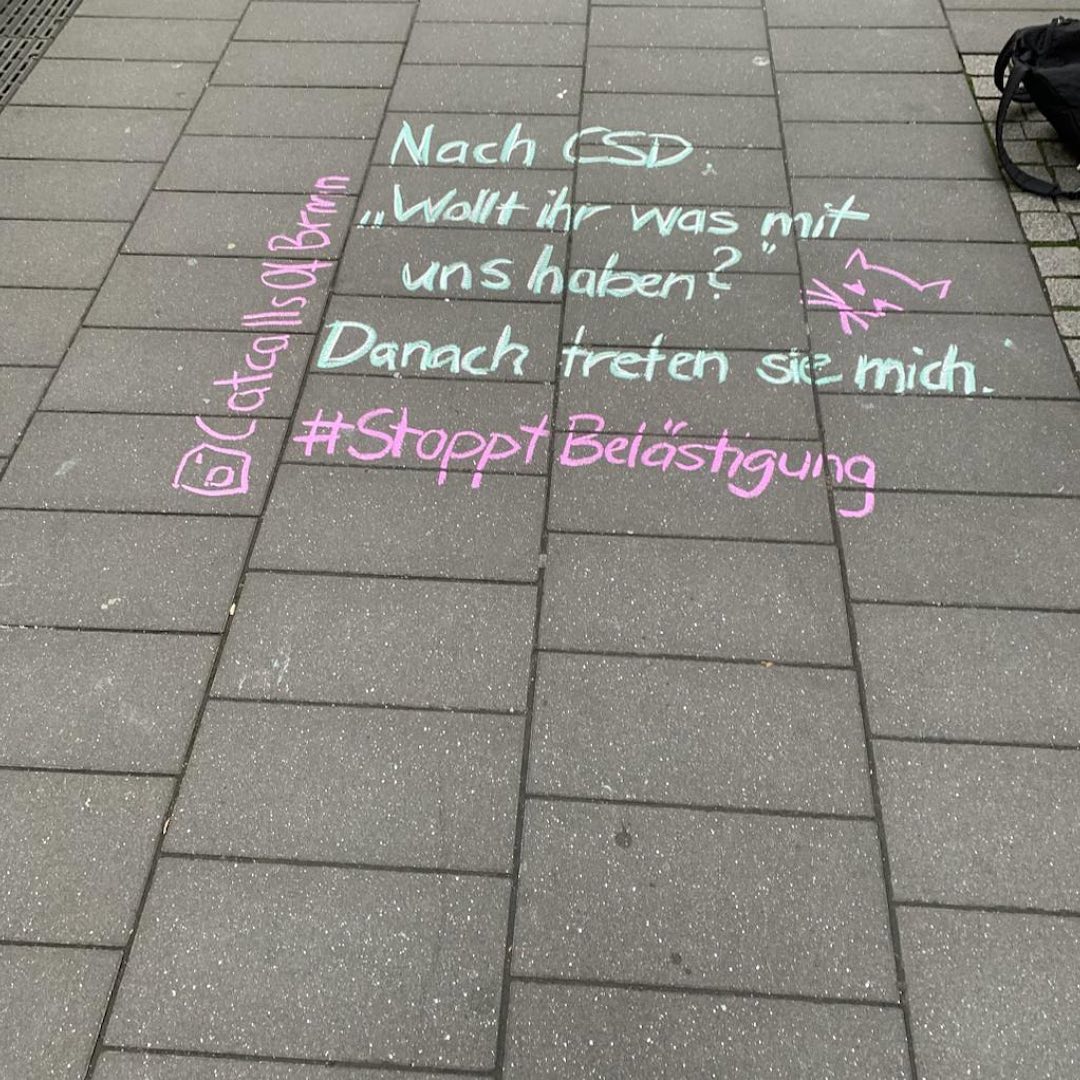 Nach CSD.
„Wollt ihr was mit
uns haben?"
Danach treten sie mich.
#StopptBelästigung
CatcallsOfBrmn